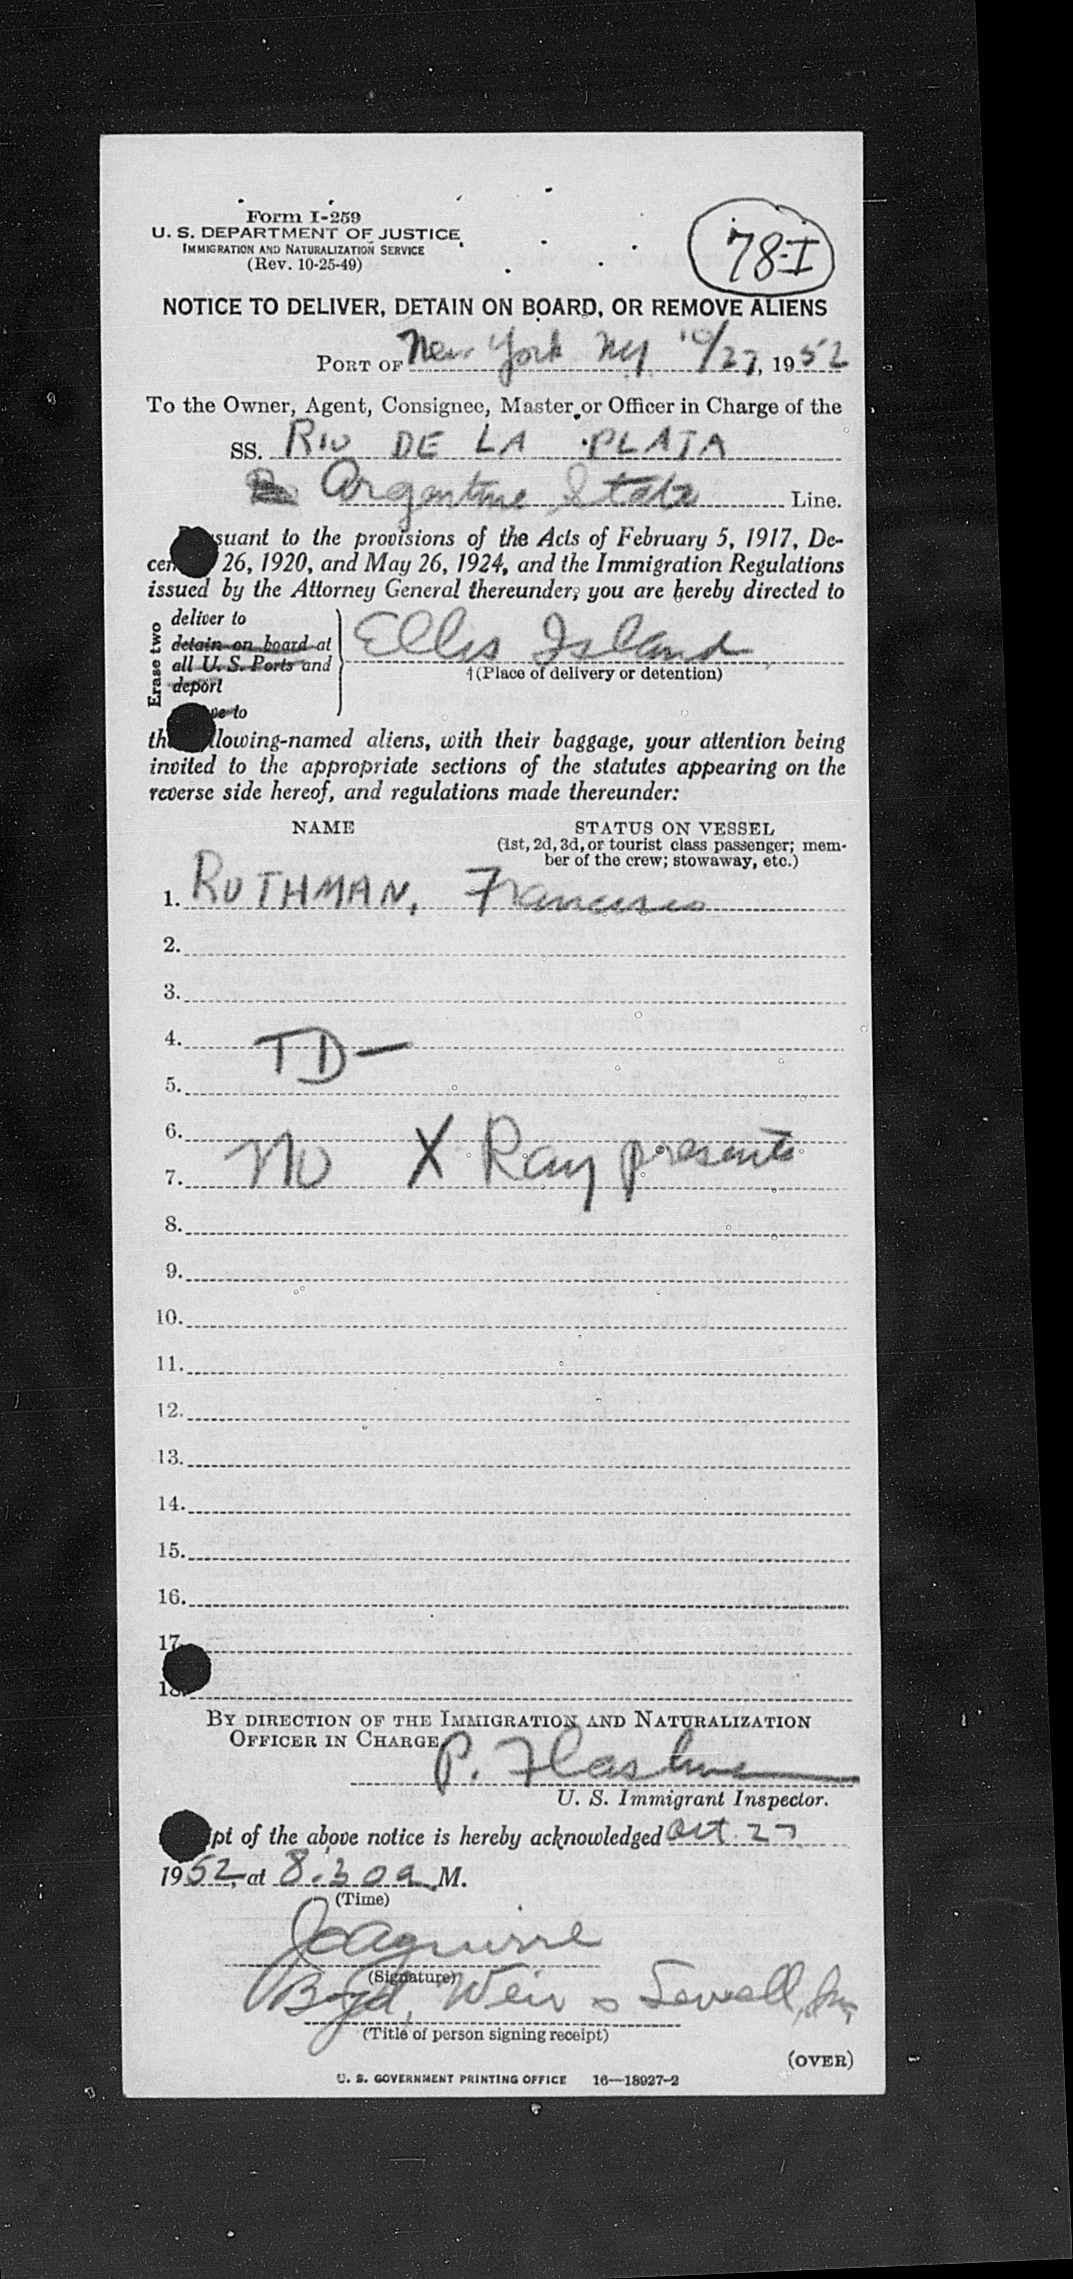 Form I-259
U. S. DEPARTMENT OF JUSTICE
IMMIGRATION AND NATURALIZATION SERVICE
(Rev. 10-25-49)
78-I
NOTICE TO DELIVER, DETAIN ON BOARD, OR REMOVE ALIENS
PORT OF New York NY 10/27, 1952
To the Owner, Agent, Consignee, Master or Officer in Charge of the
SS. RIO DE LA PLATA
Argentine State Line.
suant to the provisions of the Acts of February 5, 1917, De-
cem 26, 1920, and May 26, 1924, and the Immigration Regulations
issued by the Attorney General thereunder, you are hereby directed to
Erase two
deliver to
detain on board at
all U. S. Ports and
deport
ve to
Ellis Island
(Place of delivery or detention)
the llowing-named aliens, with their baggage, your attention being
invited to the appropriate sections of the statutes appearing on the
reverse side hereof, and regulations made thereunder:
NAME STATUS ON VESSEL
(1st, 2d, 3d, or tourist class passenger; mem-
ber of the crew; stowaway, etc.)
1. RUTHMAN, Francisco
2.
3.
4. TD-
5.
6.
No X Ray presents
7.
8.
9.
10.
11.
12.
13.
14.
15.
16.
17.
18.
BY DIRECTION OF THE IMMIGRATION AND NATURALIZATION
OFFICER IN CHARGE
P.
U. S. Immigrant Inspector.
ipt of the above notice is hereby acknowledged Oct. 27
1952, at 8:30 a M.
(Time)
(Signature)
Boyd, Weir & Sewell, Inc
(Title of person signing receipt)
(OVER)
U. S. GOVERNMENT PRINTING OFFICE 16—18927-2